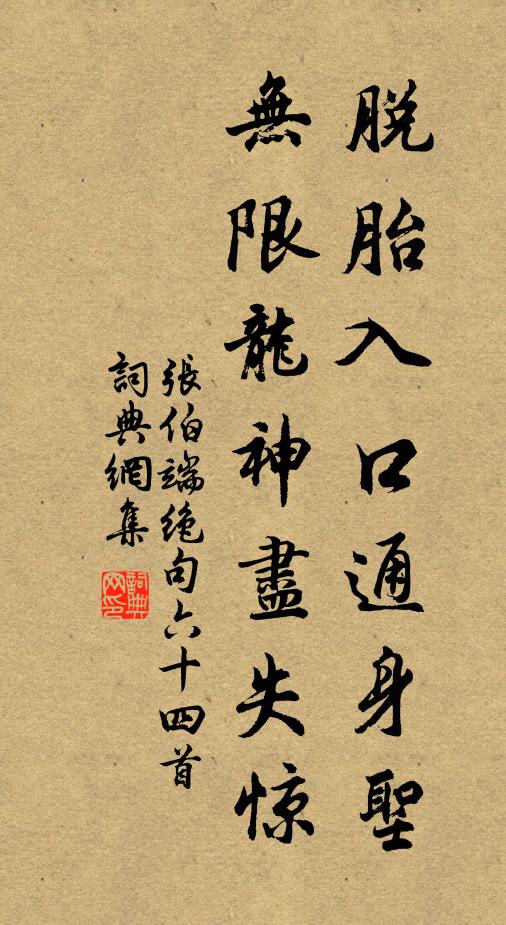 脫胎入口通身聖
無限龍神盡失惊
張伯端絶句六十四首
詞典網集
詞典网印